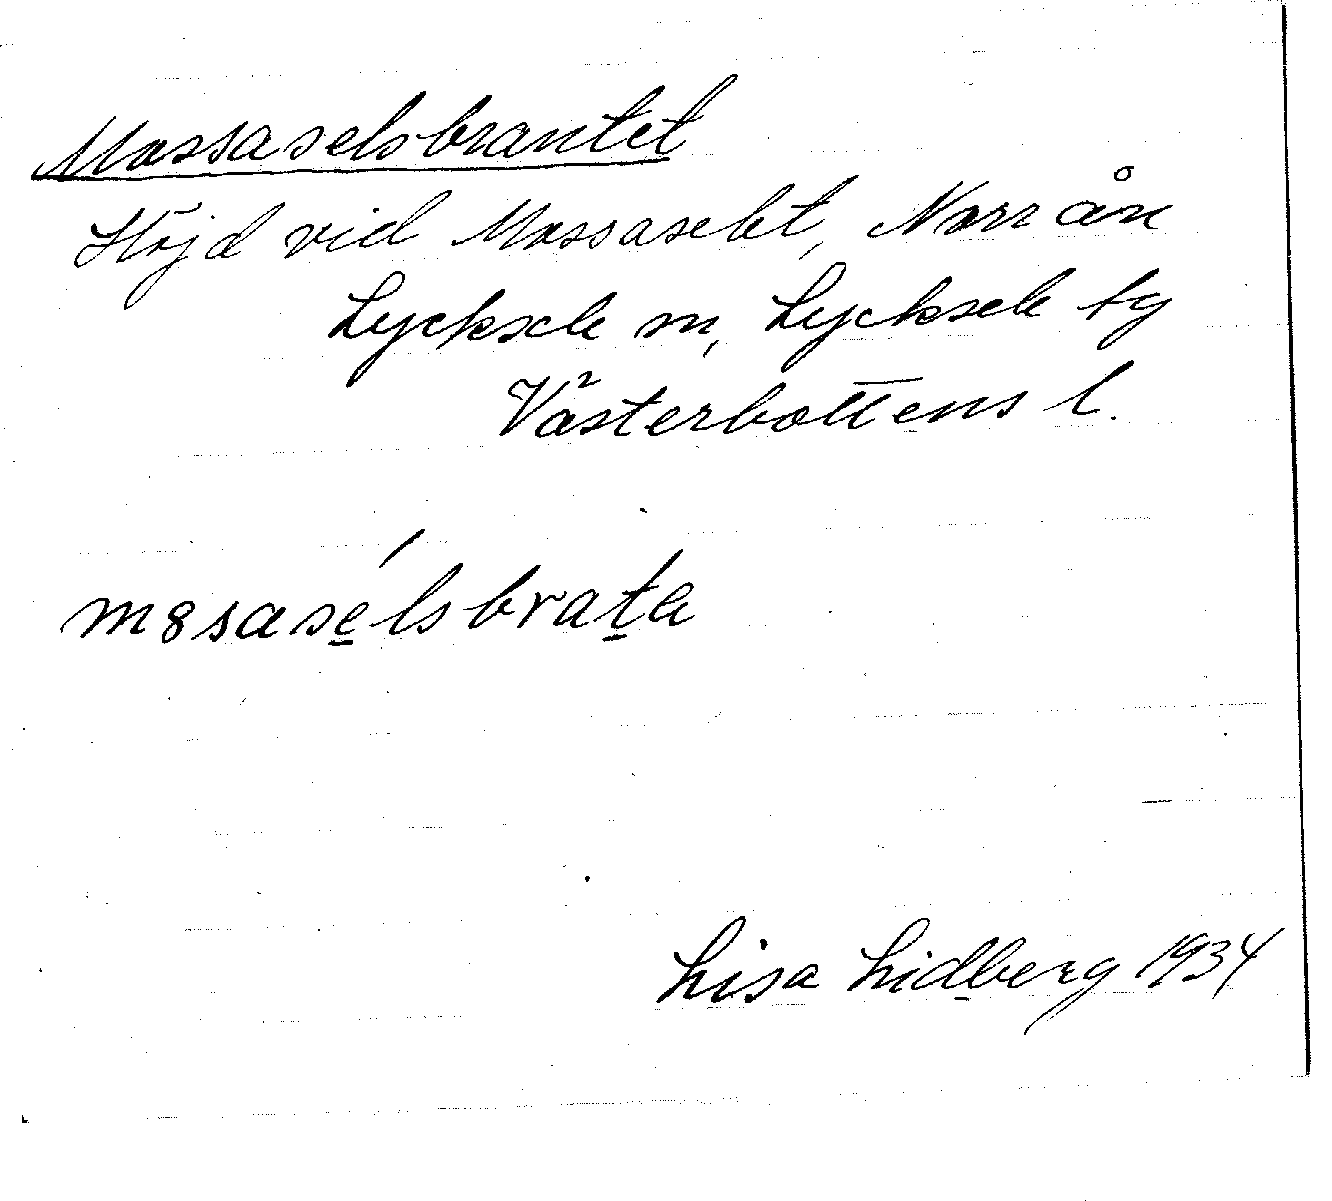 Mossaselsbrantet
Höjd vid Mossaselet, Norrån
Lycksele sn, Lycksele tg
Västerbottens l.
Lisa Lidberg 1934